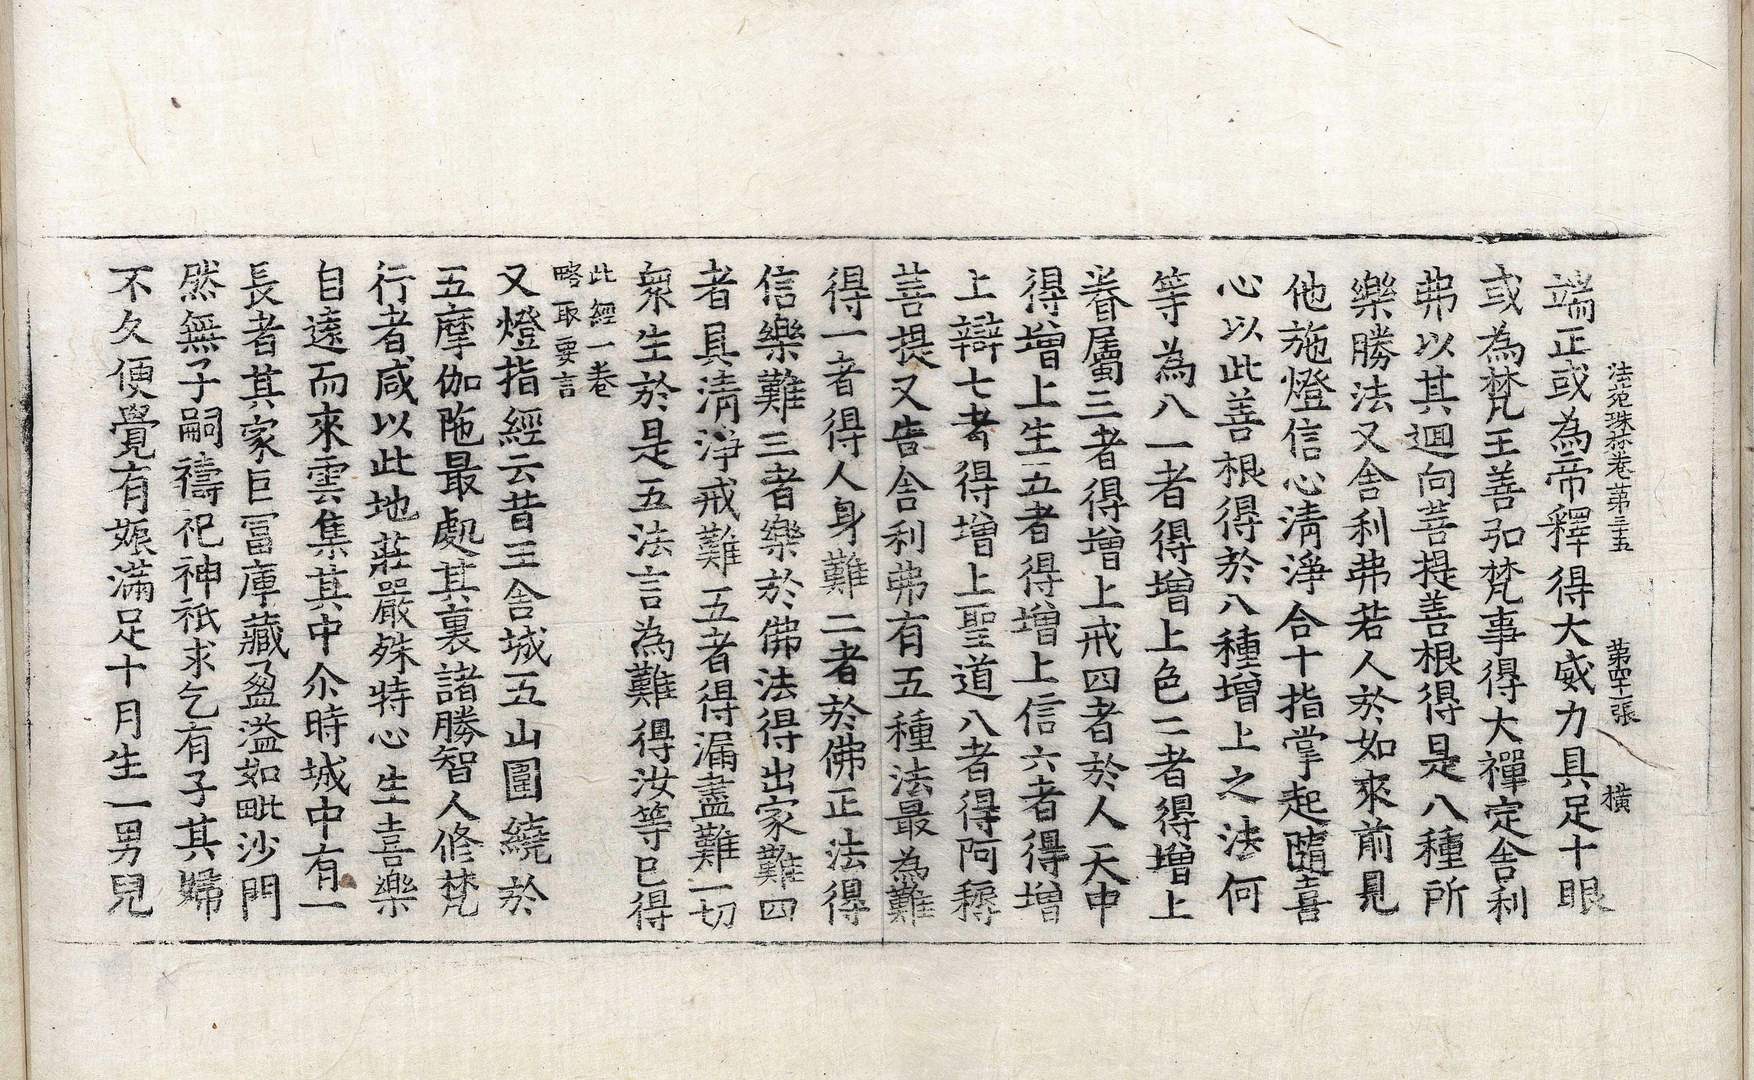 法苑珠林卷第三十五　第四十張　橫
端正或為帝釋得大威力具足十眼
或為梵王善弘梵事得大禪定舍利
弗以其迴向菩提善根得是八種所
樂勝法又舍利弗若人於如來前見
他施燈信心清淨合十指掌起隨喜
心以此善根得於八種增上之法何
等為八一者得增上色二者得增上
眷屬三者得增上戒四者於人天中
得增上生五者得增上信六者得增
上辯七者得增上聖道八者得阿耨
菩提又告舍利弗有五種法最為難
得一者得人身難二者於佛正法得
信樂難三者樂於佛法得出家難四
者具清淨戒難五者得漏盡難一切
衆生於是五法言為難得汝等已得
此經一卷
略取要言
又燈指經云昔王舍城五山圍繞於
五摩伽陁最處其裏諸勝智人修梵
行者咸以此地莊嚴殊特心生喜樂
自遠而來雲集其中尒時城中有一
長者其家巨冨庫藏盈溢如毗沙門
然無子嗣禱祀神祇求乞有子其婦
不久便覺有娠滿足十月生一男兒